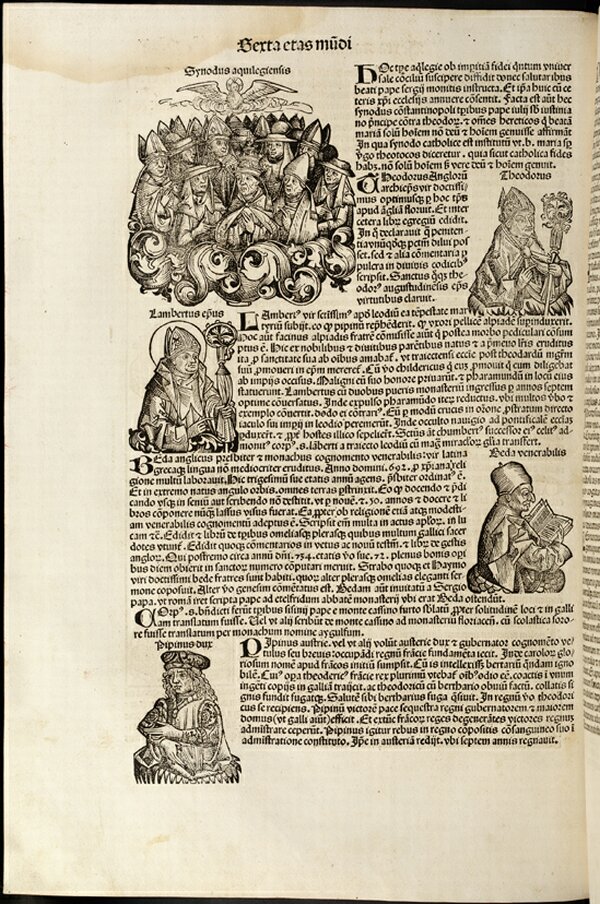 Sexta etas mūdi
Synodus aquilegiensis
HOc tꝑe aq̄legie ob impitiā fidei q̄ntum vniuer
sale cōciliū suscipere diffidit donec salutaribus
beati pape sergij monitis instructa. Et ip̄a huic cū ce
teris xp̄i ecclesijs annuere cōsentit. Facta est aūt hec
synodus cōstantinopoli tꝑibus pape iulij sb̄ iustinia
no prīcipe cōtra theodoꝝ. ⁊ om̄es hereticos q̄ beatā
mariā solū hoīem nō deū ⁊ hoīem genuisse affirmāt
In qua synodo catholice est institutū vt. b. maria sp̄
v̓go theotocos diceretur. quia sicut catholica fides
habꝫ. nō solū hoīem sꝫ vere deū ⁊ hoīem genuit.
THeodorus Angloꝝ
archiep̄us vir doctissi/
mus optimusqꝫ ꝑ hoc tp̄s
apud āgliā floruit. Et inter
cetera libꝝ egregiū edidit.
In q̄ declarauit q̄ peniten/
tia vnūqdqꝫ petm̄ dilui pos
set. sed ⁊ alia cōmentaria ꝑ
pulcra in diuinis codicibꝰ
scripsit. Sanctus q̄qꝫ the/
odorꝰ augustudinēsis ep̄s
virtutibus claruit.
Theodorus
Lambertus ep̄us
LAmbertꝰ vir sctīssimꝰ apō leodiū ea tēpestate mar
tyriū subijt. co ꝙ pipinū rep̄hēderit. ꝙ vxori pellicē alpiadē supinduxerit.
Hoc aūt facinus alpiadis fratrē cōmisisse aiūt q̄ postea morbo pediculari cōsum
ptus ē. Hic ex nobilibus ⁊ diuitibus parētibus natus
ita ꝓ sanctitate sua ab oībus amabaꝶ. vt traiectensi ecclīe post theodardū mgr̄m
suū ꝓmoueri in ep̄m mereret̓. Cū v̓o childericus q̄ eū ꝓmouit q̄ eum diligebat
ab impijs occisus. Maligni cū suo honore priuarūt. ⁊ pharamundū in loci eius
statuerunt. Lambertus cū duobus pueris monasteriū ingressus ꝑ annos septem
optime cōuersatus. Inde expulso pharamūdo iteꝝ reductus. vbi multos v̓bo ⁊
exemplo cōuertit.
iaculo sui impij in leodio peremerūt. Inde occulto nauigio ad pontificalē ecclīaꝫ
BEda anglicus presbiter ⁊ monachus cognomento venerabilis: vir latina
grecaqꝫ lingua nō mediocriter eruditus. Anno domini. 692. ꝓ xp̄iana reli
gione multū laborauit. Hic trigesimū sue etatis annū agens. p̄sbiter ordinatꝰ ē.
Et in extremo natus angulo orbis. omnes terras ꝑstrinxit. Eo ꝙ docendo ⁊ p̄di
cando vsqꝫ in seniū aut serbendo nō destitit. vt ꝑ nouē. ⁊ .50. annos ⁊ docere ⁊ li
bros cōponere nūqꝫ lassus visus fuerat. Ea ꝓpter ob religionē eiꝰ atqꝫ modesti/
am venerabilis cognomentū adeptus ē. Scripsit em̄ multa in actus aploꝝ. in lu
cam ⁊c̄. Edidit ⁊ librū de tꝑibus omeliasqꝫ plerasqꝫ quibus multum gallici sacer
dotes vtunꝶ. Edidit quoqꝫ cōmentarios in vetus ac nouū testm̄. ⁊ libꝝ de gestis
angloꝝ. Qui postremo circa annū dn̄i .734. etatis v̓o sue .72. plenus bonis opi
bus diem obierit in sanctoꝝ numero cōputari meruit. Strabo quoqꝫ et Haymo
viri doctissimi bede fratres sunt habiti. quoꝝ alter plerasqꝫ omelias eleganti ser
mone cōposuit. Alter v̓o genesim cōmētatus est. Bedam aūt inuitati a Sergio
papa. vt romā iret scripta pape ad etelfridum abbatē monasterij vbi erat Beda ostendūt.
Beda venerabilis
COrpꝰ .s. bn̄dicti ferūt tꝑibus sisinij pape e monte cassino furto sb̄latū ꝓpter solitudinē loci ⁊ in galli
am translatum fuisse. Uel vt alij scribūt de monte cassino ad monasteriū floriacēn. cū scolastica soro/
re fuisse translatum per monachum nomine aygulfum.
Pipinus dux
PIpinus austrie. vel vt alij volūt austerie dux ⁊ gubernator cognomēto ve/
tulus seu breuis
riosum nomē apud francos initiū sumpsit. Cū is intellexissꝫ bertariū q̄ndam igno
bilē. Cuiꝰ opa theodericꝰ frācie rex plurimū vtebaꝶ
ingēti copijs in galliā traijcit. ac theodoricū cū berthario obuiū factū. collatis si
gnis fundit fugatqꝫ. Salutē sibi bertharius fuga q̄siuit. In regnū v̓o theodori
cus se recipiens. Pipinū victorē pace sequestra regni gubernatorem ⁊ maiorem
domus (vt galli aiūt) efficit. Et extūc frācoꝝ reges degenerātes victores regnuꝫ
admīstrare ceperūt. Pipinus igitur rebus in regno cōpositis cōsanguineo suo ī
admīstratione constituto. Ip̄e in austeriā redijt. vbi septem annis regnauit.